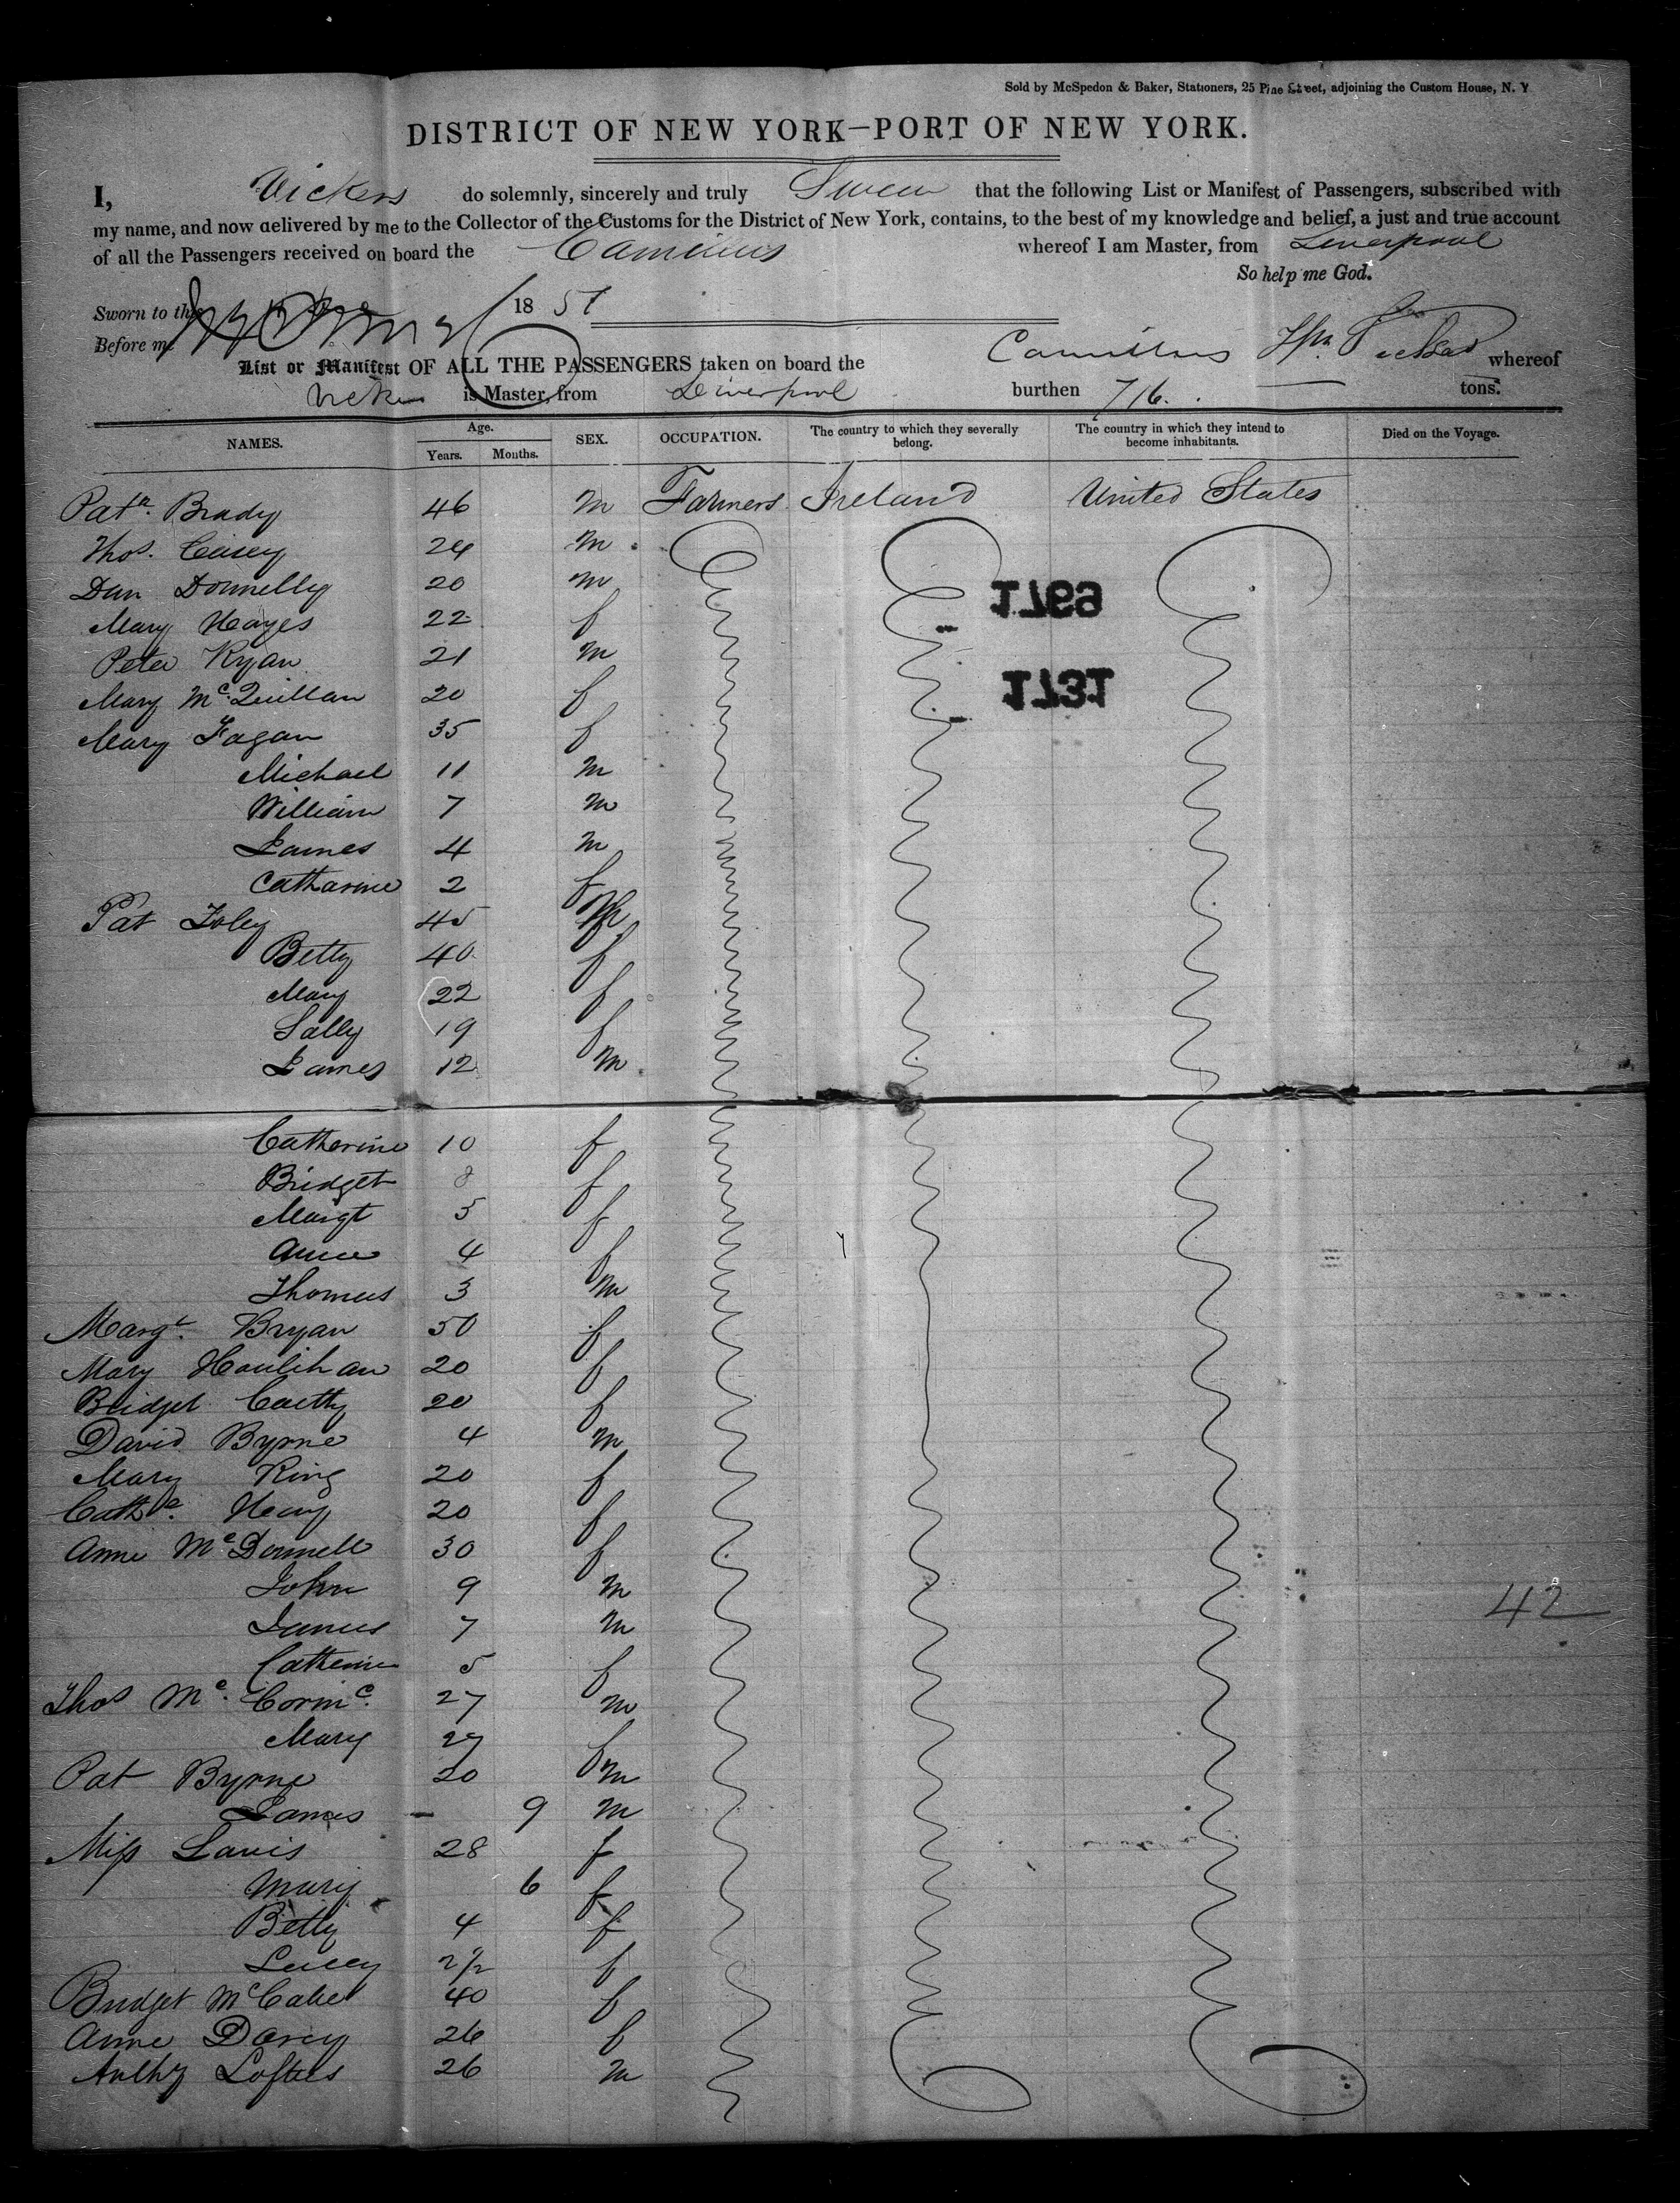 Sold by McSpedon & Baker, Stationers, 25 Pine Street, adjoining the Custom House, N. Y
DISTRICT OF NEW YORK—PORT OF NEW YORK.
I, Vickers do solemnly, sincerely and truly Swear that the following List or Manifest of Passengers, subscribed with
my name, and now delivered by me to the Collector of the Customs for the District of New York, contains, to the best of my knowledge and belief, a just and true account
of all the Passengers received on board the Camillus whereof I am Master, from Liverpool
So help me God.
Sworn to this 1851
Before me
List or Manifest OF ALL THE PASSENGERS taken on board the Camillus whereof
is Master, from Liverpool burthen 716. tons.
NAMES. Age. Years. Months. SEX. OCCUPATION. The country to which they severally belong. The country in which they intend to become inhabitants. Died on the Voyage.
Patk. Brady 46 M Farmers Ireland United States
Thos. Casey 24 M
Dan Donnelly 20 M
1769
Mary Hayes 22 f
Peter Ryan 21 M
1731
Mary McQuillan 20 f
Mary Fagan 35 f
Michael 11 M
William 7 M
James 4 M
Catharine 2 f
Pat Foley 45 M
Betty 40 f
Mary 22 f
Sally 19 f
James 12 M
Catherine 10 f
Bridget 8 f
Margt 5 f
Anne 4 f
Thomas 3 M
Margt. Bryan 50 f
Mary Houlihan 20 f
Bridget 20 f
David Byrne 4 M
Mary King 20 f
20 f
Anne McDonnell 30 f
John 9 M
42
James 7 M
Catherine 5 f
Thos Mc. Cormc. 27 M
Mary 27 f
Pat Byrne 20 M
James - 9 M
Miss 28 f
Mary 6 f
Betty 4 f
Lucey 2 1/2 f
Bridget McCabe 40 f
Anne Darcy 26 f
Anthy Loftus 26 M